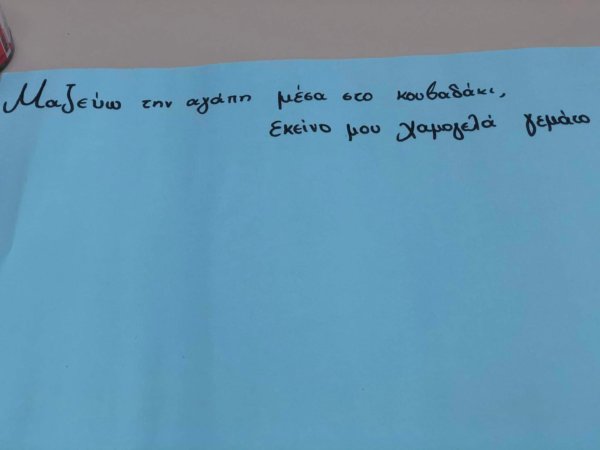 Μαζεύω την αγάπη μέσα στο κουβαδάκι,
εκείνο μου χαμογελά γεμάτο